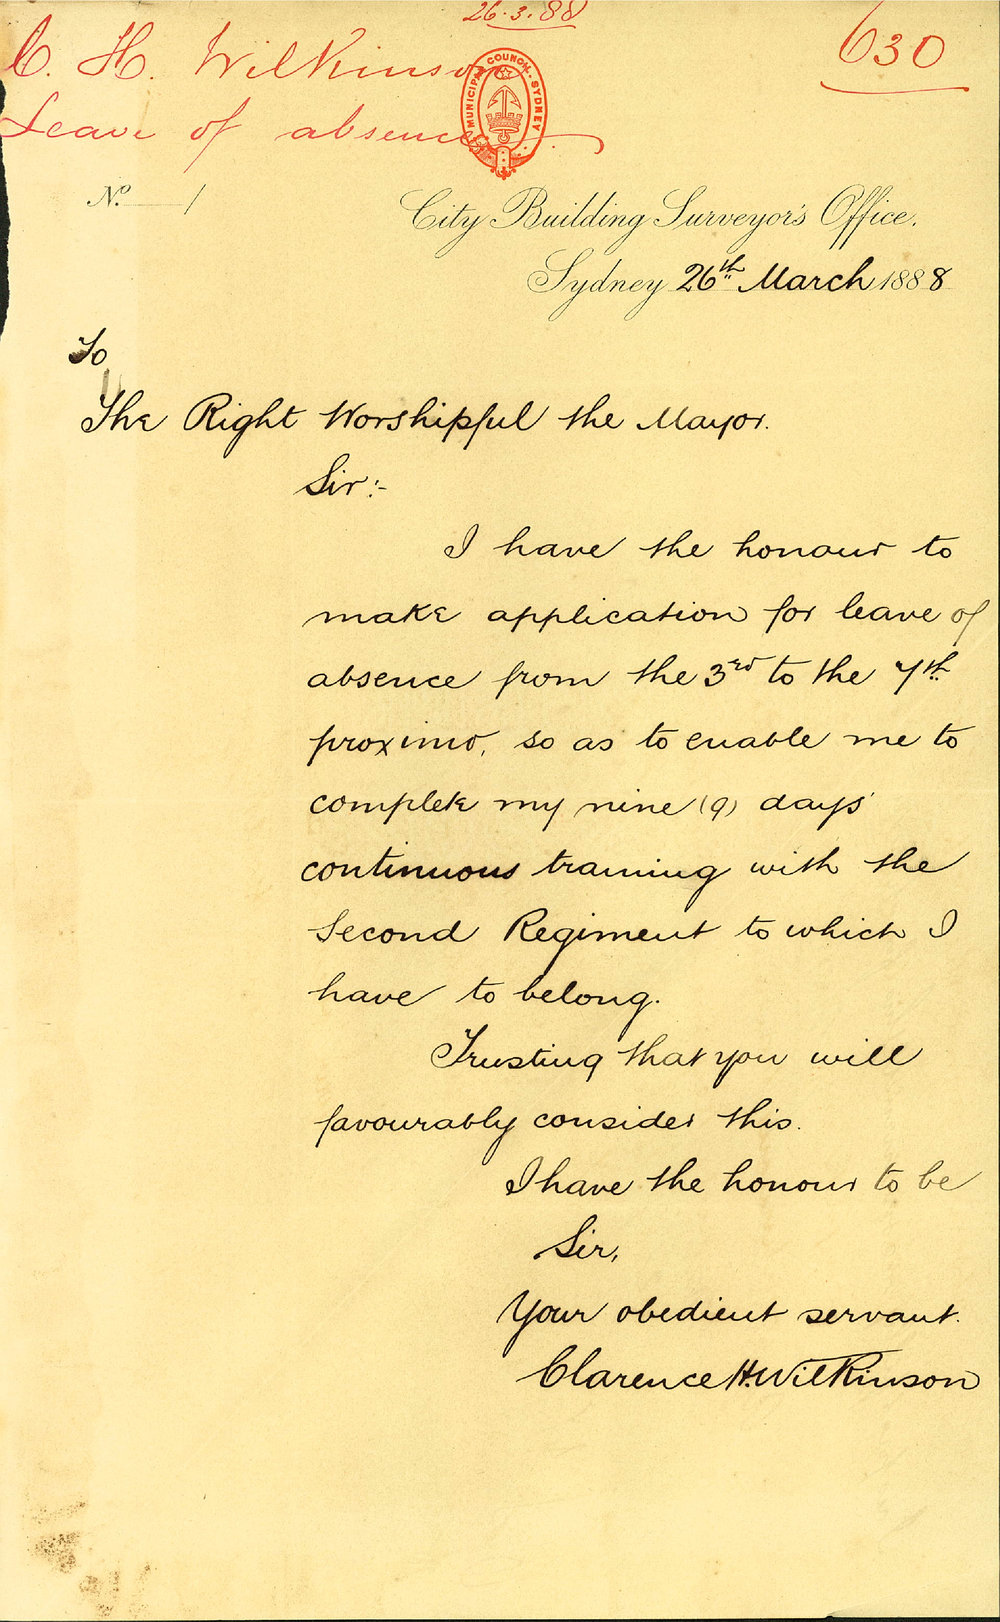 26.3.88
630
C. H. Wilkinson
Leave of absence
MUNICIPAL COUNCIL SYDNEY
No. /
City Building Surveyor's Office.
Sydney 26th March 1888
To
The Right Worshipful the Mayor.
Sir:-
I have the honour to
make application for leave of
absence from the 3rd to the 7th
proximo, so as to enable me to
complete my nine (9) days'
continuous training with the
Second Regiment to which I
have to belong.
Trusting that you will
favourably consider this.
I have the honour to be
Sir,
Your obedient servant.
Clarence H. Wilkinson